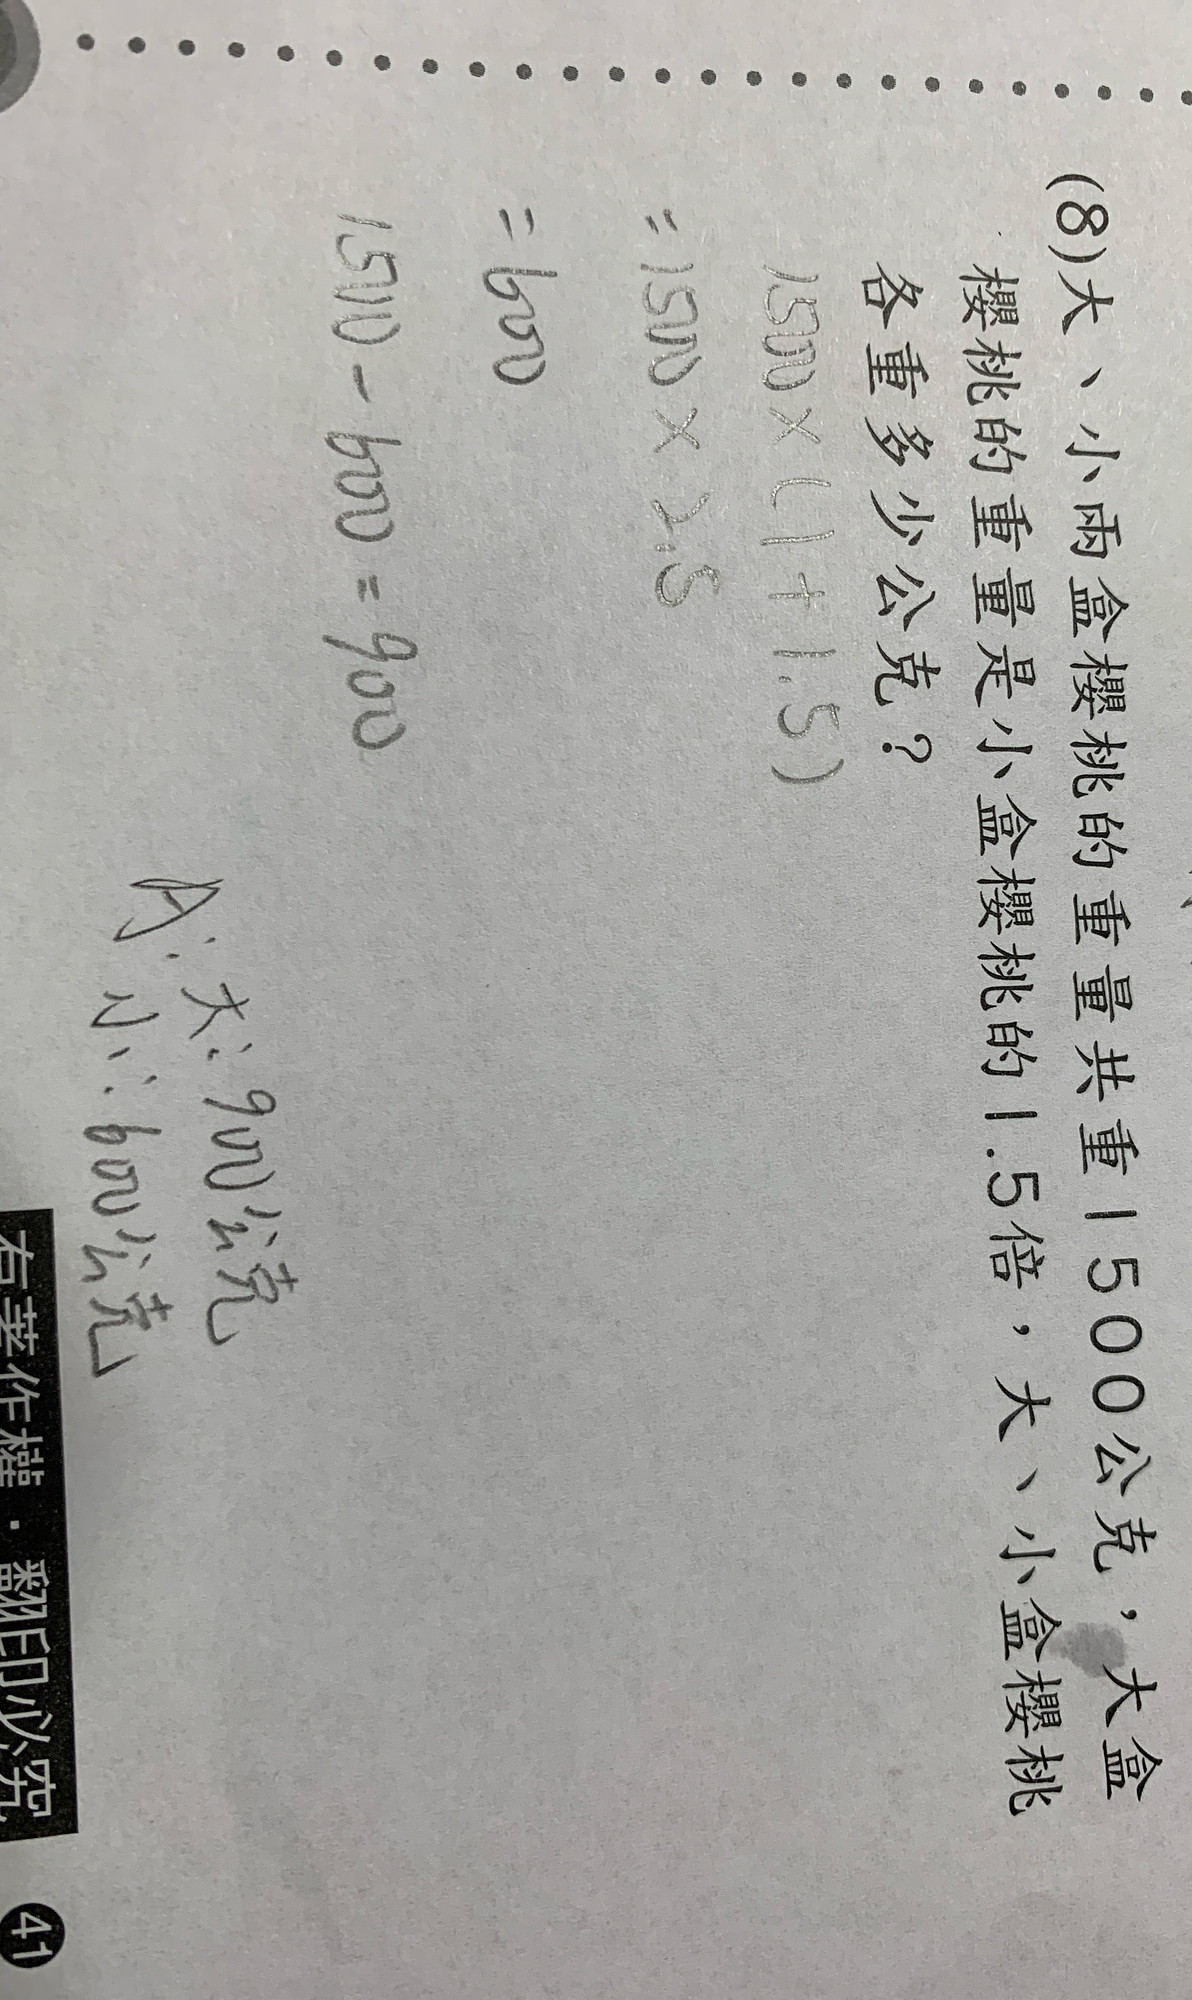 (8)大、小兩盒櫻桃的重量共重1500公克，大盒
櫻桃的重量是小盒櫻桃的1.5倍，大、小盒櫻桃
各重多少公克？
1500×(1+1.5)
=1500×2.5
=600
1500-600=900
A:大:900公克
小:600公克
有著作權·翻印必究
41